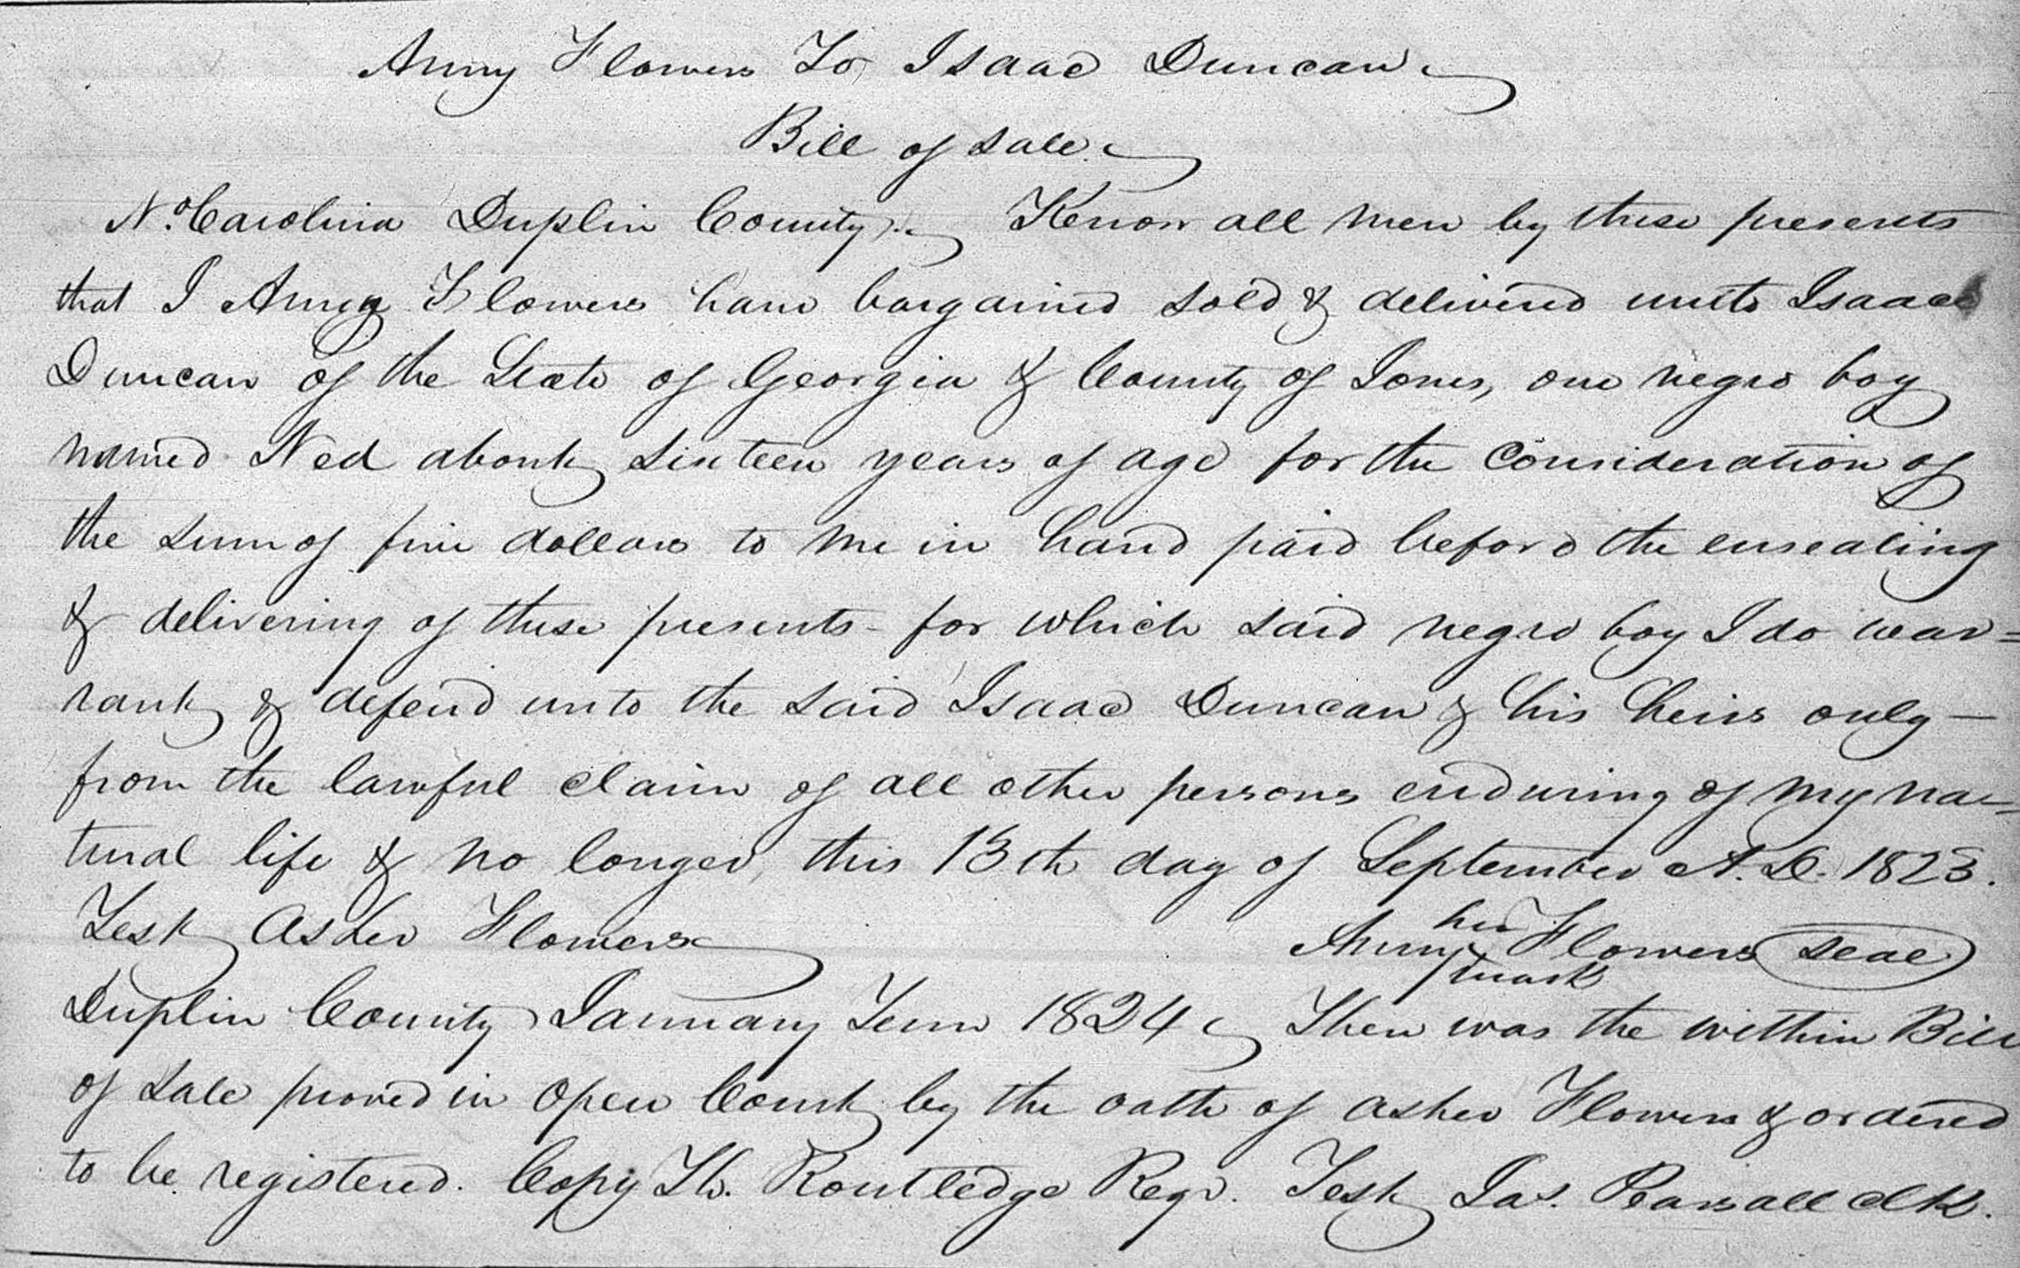 Anny Flowers To Isaac Duncan
Bill of sale
No. Carolina Duplin County. Know all men by these presents
that I Anny Flowers have bargained sold & delivered unto Isaac
Duncan of the State of Georgia & County of Jones, one negro boy
named Ned about sixteen years of age for the consideration of
the sum of five dollars to me in hand paid before the ensealing
& delivering of these presents for which said negro boy I do war=
rant & defend unto the said Isaac Duncan & his heirs only —
from the lawful claim of all other persons enduring of my na=
tural life & no longer, this 13th day of September A.D. 1823.
Test Asher Flowers
her
Anny Flowers seal
mark
Duplin County January Term 1824 Then was the within Bill
of sale proved in open Court by the oath of Asher Flowers & ordered
to be registered. Copy Th. Routledge Regr. Test Jas. Pearsall clk.